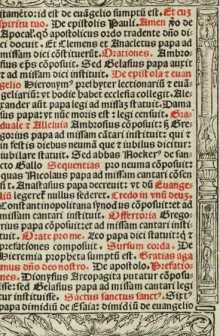 stamẽto: id est de euãgelio sumptũ est. Et cuz
spiritu tuo. De epistolis Pauli. Amen ꝟo de
Apocal. qđ apostolicus ordo tradente dño di-
cere docuit. Et Clemens et Anacletus papa ad
missam dici cõstituerũt. Orationes. Ambro-
sius ep̃s cõposuit. Sed Gelasius papa ante
et ad missam dici instituit. De epistola et euan
gelio Hieronym⁹ presbyter lectionariũ et euã-
geliariũ: vt hodie habet ecclesia collegit. Ale-
xander aũt papa legi ad missaz statuit. Dama
sus papa: vt nũc moris est legi censuit. Gra-
duale et Alleluia Ambrosius cõposuit: s̃ Gre-
gorius papa ad missam cãtari instituit: qui et
in festis diebus neumã que et iubilus dicitur
iubilare statuit. Sed abbas Nocker⁹ de san-
cto Gallo Sequentias pro neuma cõposuit
quas Nicolaus papa ad missam cantari cõces
sit. Anastasius papa decreuit: vt dũ Euange-
liũ legeret̃ nullus sederet. Credo in vnũ deuz.
Constantinopolitana synodus cõposuit: et ad
missam cantari instituit. Offertoria Grego-
rius papa cõposuit: et ad missam cantari insti
tuit. Orate pro me. Leo papa dici statuit: q̃ et
prefationes composuit. Sursum corda. De
Hieremia propheta sumptũ est. Gratias aga
mus dño deo nostro. De apostolo. Prefatio-
nes. Dionysius Areopagita putatur cõposu-
isse: sed Gelasius papa ad missam cantari legi
tur instituisse. Sanctus sanctus sanct⁹. Sixt⁹
papa dimidiũ de Esaia: dimidiũ de euangelio